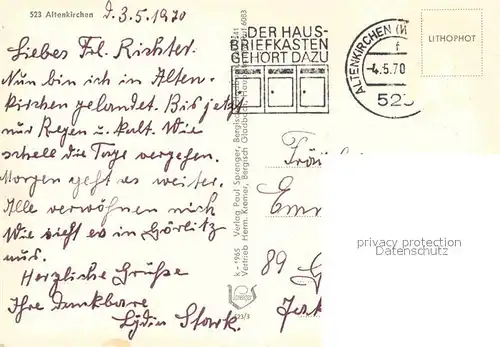 523 Altenkirchen
d. 3.5.1970
Liebes Frl. Richter.
Nun bin ich in Alten-
kirchen gelandet. Bis jetzt
nur Regen u. kalt. Wie
schell die Tage vergehen.
Morgen geht es weiter.
Alle verwöhnen mich
Wie sieht es in Görlitz
aus.
Herzliche Grüße
Ihre dankbare
Lydia Stark.
K - 1965 Verlag Paul Spranger, Bergisch
Vertrieb Herm. Kremer, Bergisch Gladbach,
523/3
DER HAUS-
BRIEFKASTEN
GEHÖRT DAZU
ALTENKIRCHEN (W
f
-4.5.70
523
LITHOPHOT
89
privacy protection
DatenSchutz